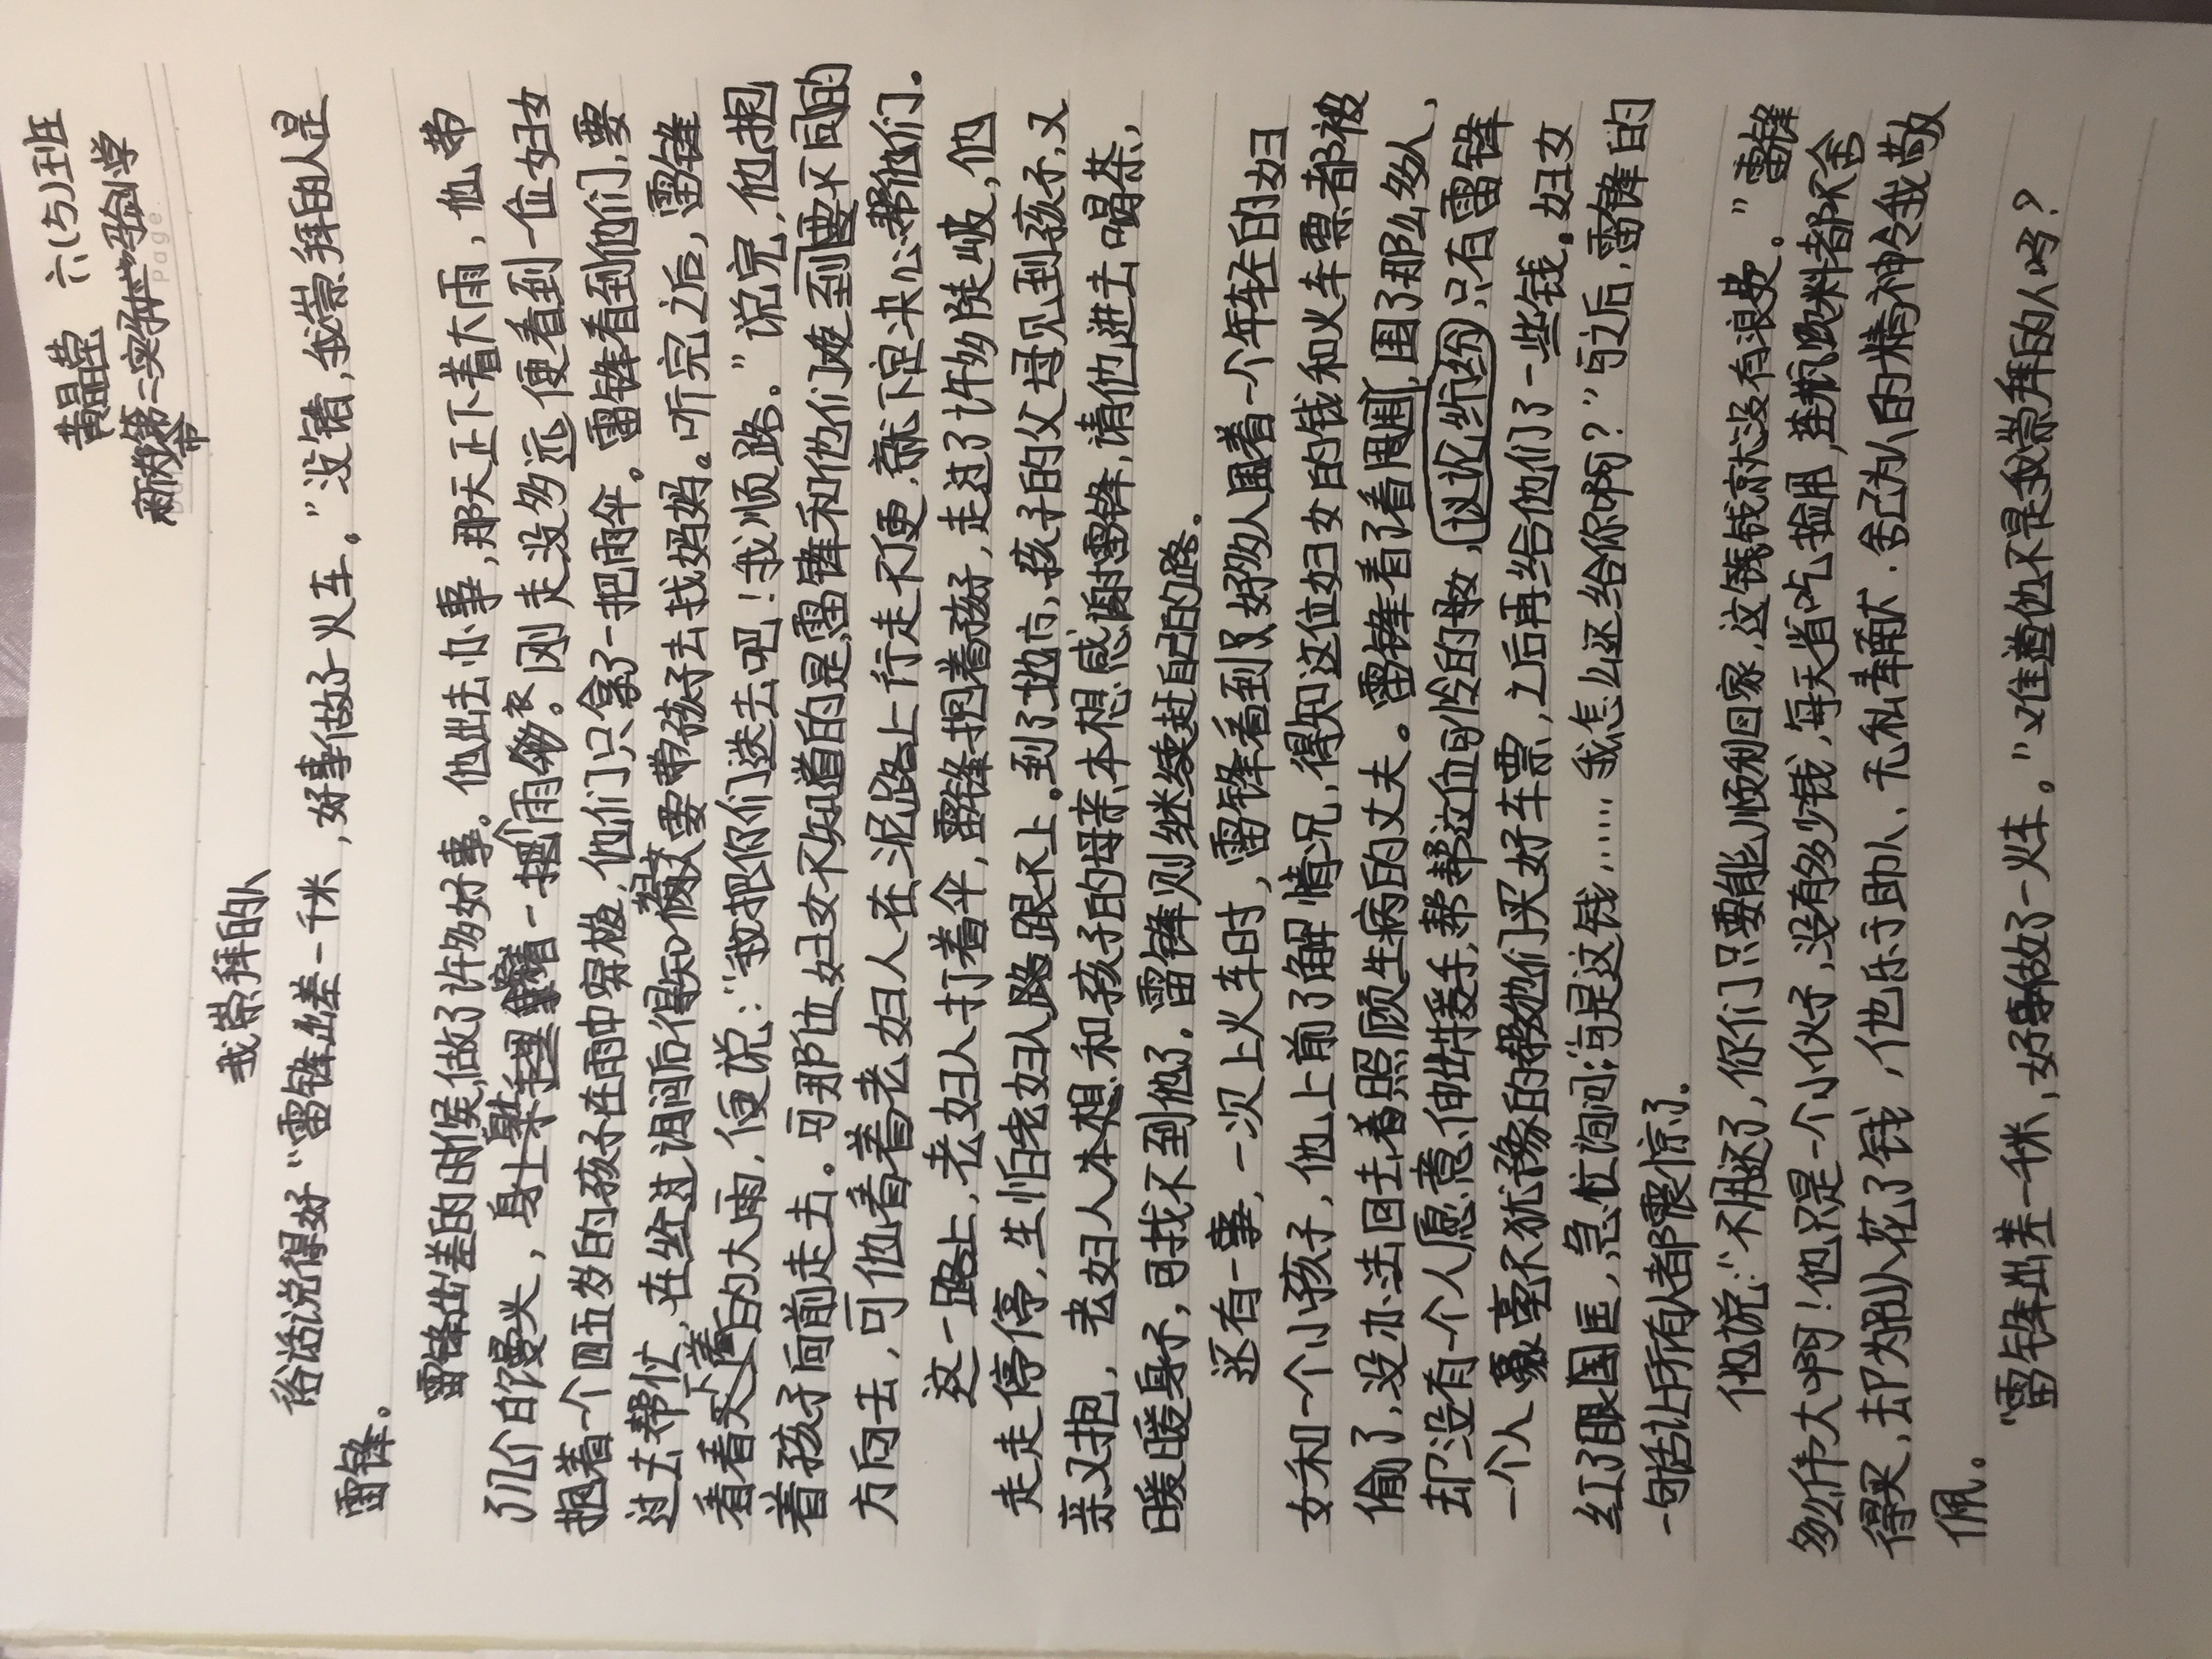 黄晶莹 六(5)班
新太市第二实验小学
Page.
我崇拜的人
俗话说得好“雷锋出差一千米,好事做了一火车。”没错,我崇拜的人是
雷锋。
雷锋出差的时候,做了许多好事。他出去办事,那天正下着大雨,他带
了几个白馒头,身上 一 雨衣。刚走没多远,便看到一位妇女
抱着一个四五岁的孩子在雨中穿梭,他们只拿了一把雨伞。雷锋看到他们,要
过去帮忙,在经过询问后得知妇女要带孩子去找妈妈。听完之后,雷锋
看着天上下着的大雨,便说:“我把你们送去吧!我顺路。”说完,他抱
着孩子向前走去。可那位妇女不知道的是,雷锋和他们 到要不同的
方向去,可他看着老妇人在泥路上行走不便,就下定决心帮他们。
这一路上,老妇人打着伞,雷锋抱着孩子,走过了许多陡坡,他
走走停停,生怕老妇人路跟不上。到了地方,孩子的父母见到孩子,又
亲又抱,老妇人本想和孩子的母亲本想感谢雷锋,请他进去喝茶,
暖暖身子,可找不到他了。雷锋则继续赶自己的路。
还有一事,一次上火车时,雷锋看到好多人围着一个年轻的妇
女和一个小孩子,他上前了解情况,得知这位妇女的钱和火车票都被
偷了,没办法回去看照顾生病的丈夫。雷锋看了看周围,围了那么多人,
却没有一个人愿意伸出援手,帮帮这位可怜的母女,议论纷纷,只有雷锋
一个人毫不犹豫的帮他们买好车票,之后再给他们了一些钱。妇女
红了眼国匡,急忙询问:“可是这钱,……我怎么还给你啊?”与之后,雷锋的
一句话让所有人都震惊了。
他说:“不用还了,你们只要能顺利回家,这钱就没有浪费。”雷锋
多么伟大啊!他只是一个小伙子,没有多少钱,每天省吃俭用,连 饮料都不舍
得买,却为别人花了钱,他乐于助人、无私奉献.舍己为人的精神令我敬
佩。
“雷锋出差一千米,好事做了一火车。”难道他不是我崇拜的人吗?